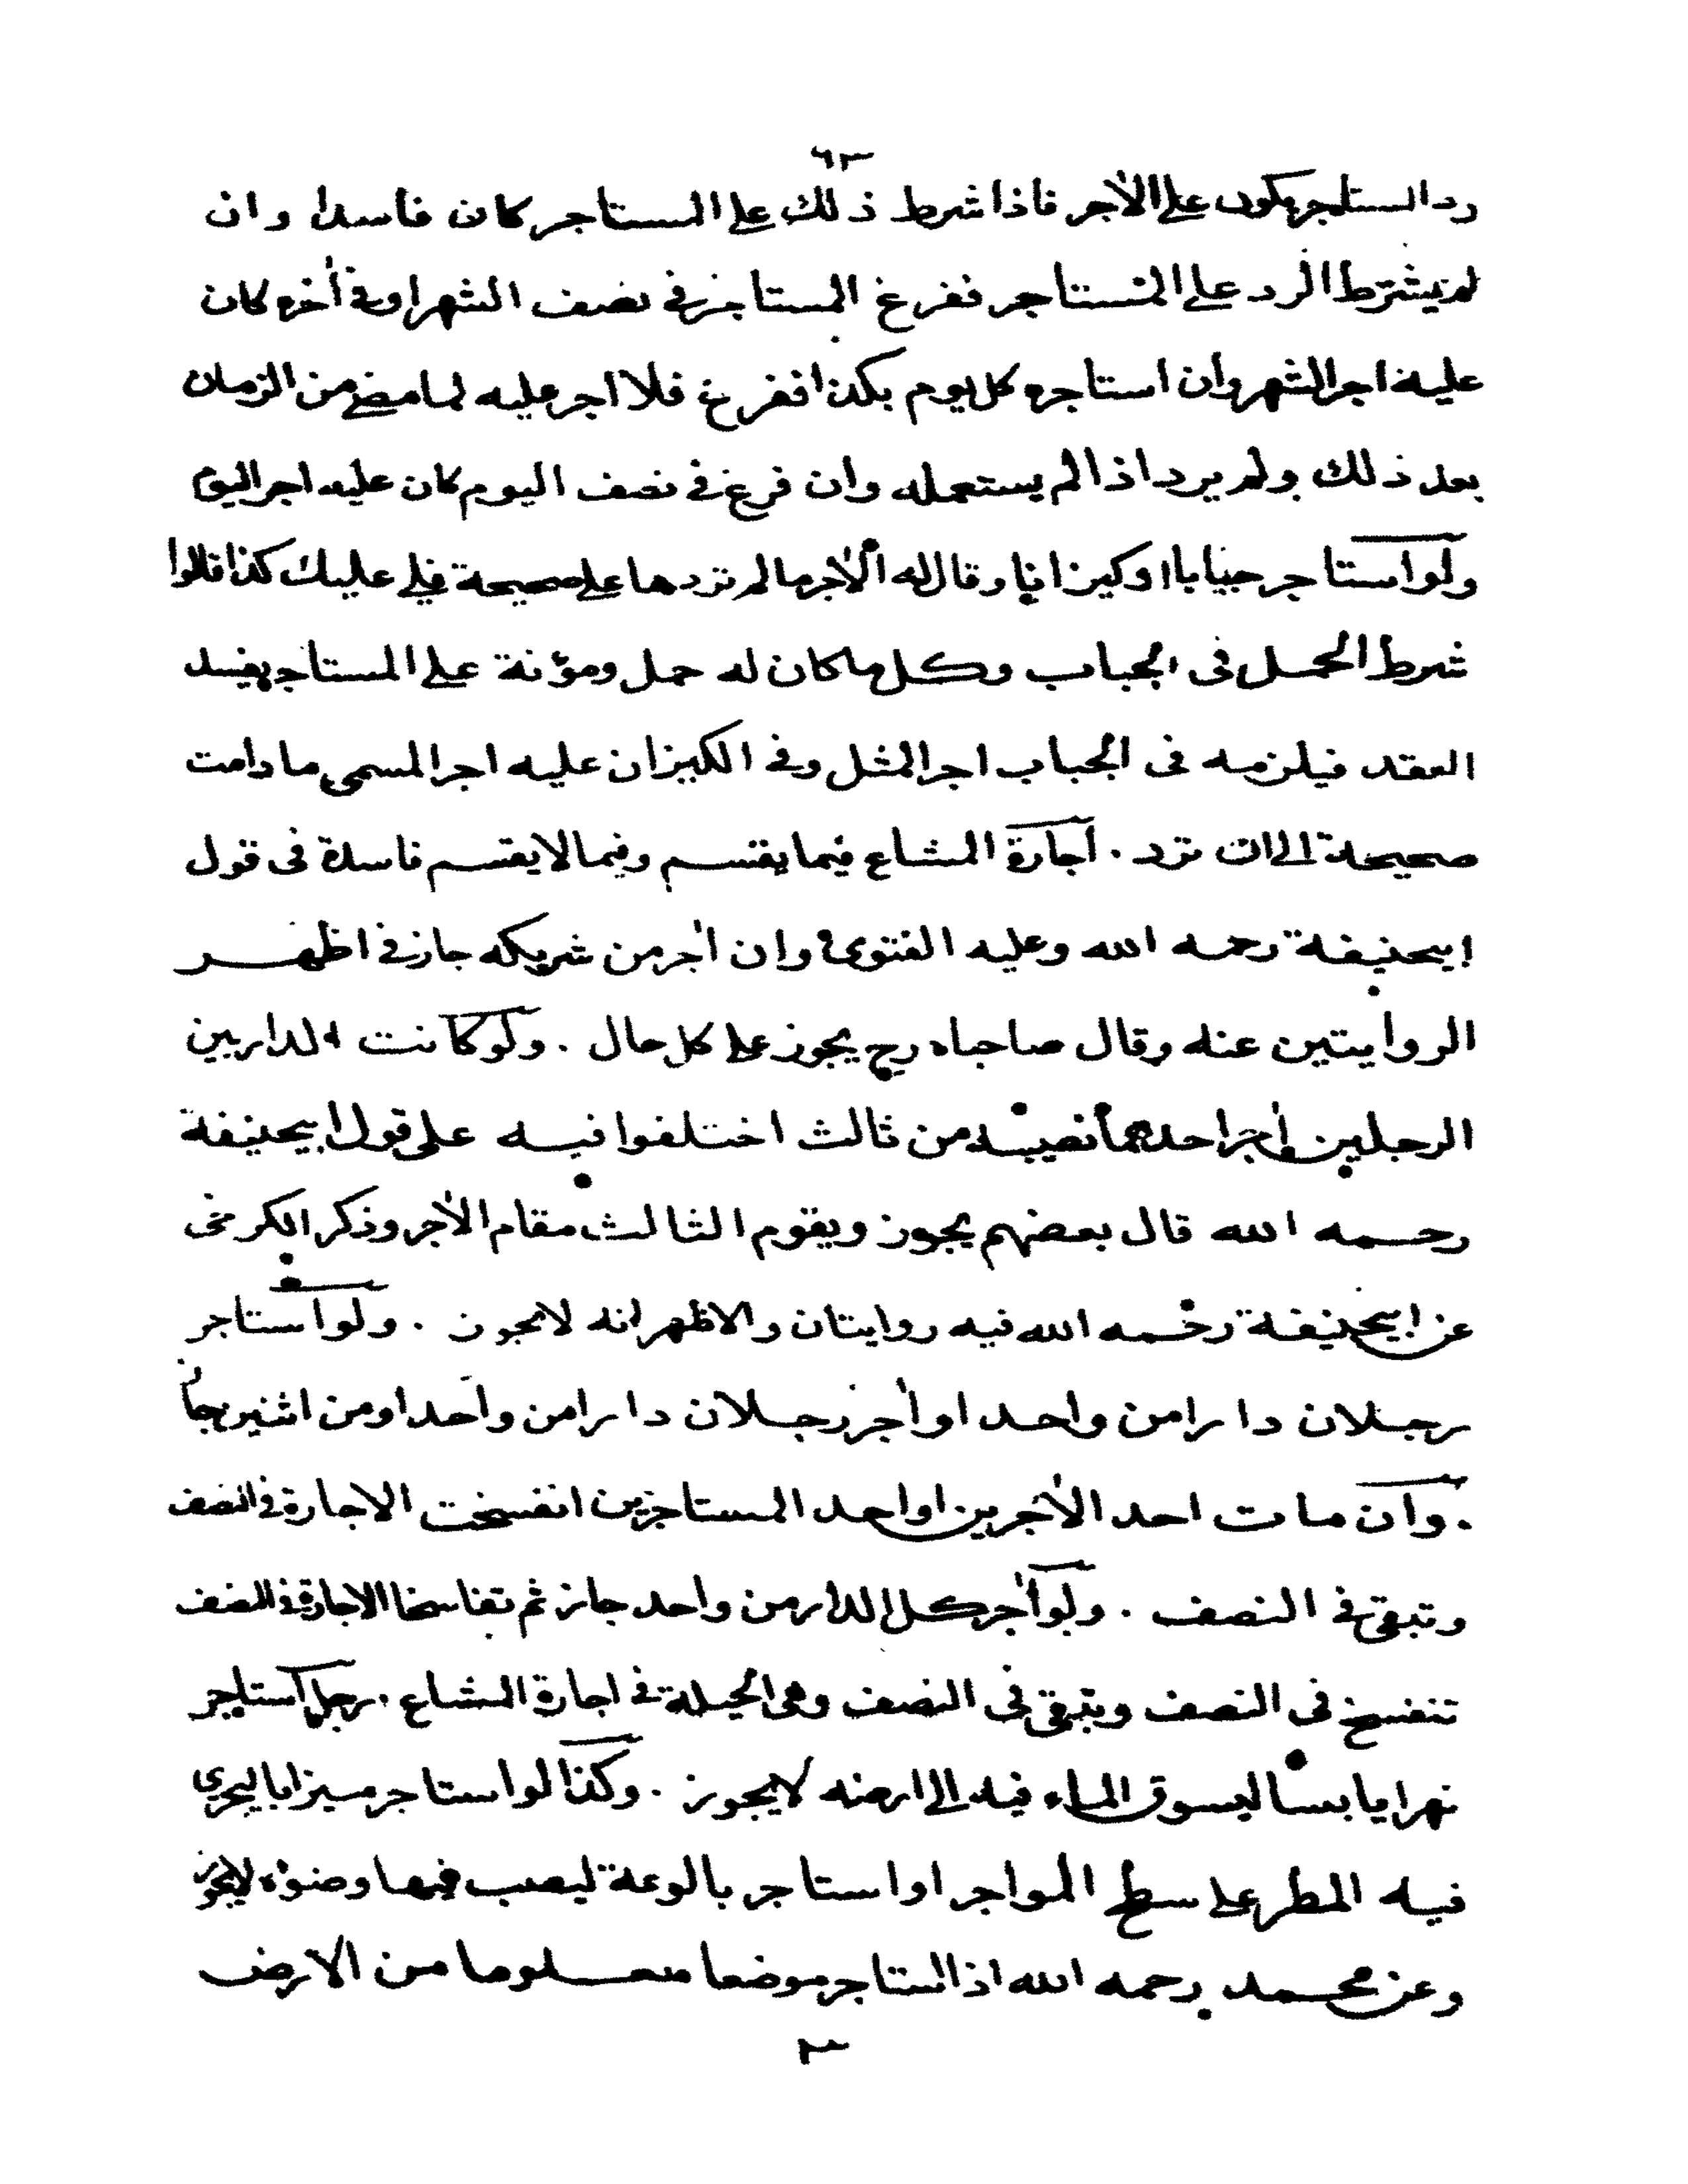 ٦٣
رد المستاجر يكون على الآجر فاذا شرط ذلك على المستاجر كان فاسدا وان
لم يشترط الرد على المستاجر ففرغ المستاجر في نصف الشهر او في آخره كان
عليه اجر الشهر وان استاجره كل يوم بكذا ففرغ فلا اجر عليه لما مضى من الزمان
بعد ذلك ولم يرد اذا لم يستعمله وان فرغ في نصف اليوم كان عليه اجر اليوم
ولو استاجر حبابا او كيزانا وقال له الآجر ما لم تردها على صحيحة فهي عليك كذا قالوا
شرط الحمل في الحباب وكل ما كان له حمل ومؤنة على المستاجر يفسد
العقد فيلزمه في الحباب اجر المثل وفي الكيزان عليه اجر المسمى ما دامت
صحيحة الى ان ترد . اجارة المشاع فيما يقسم وفيما لا يقسم فاسدة في قول
ابيحنيفة رحمه الله وعليه الفتوى وان آجر من شريكه جاز في اظهر
الروايتين عنه وقال صاحباه رح يجوز على كل حال . ولو كانت الدار بين
الرجلين وآجر احدهما نصيبه من ثالث اختلفوا فيه على قول ابيحنيفة
رحمه الله قال بعضهم يجوز ويقوم الثالث مقام الآجر وذكر الكرخى
عن ابيحنيفة رحمه الله فيه روايتان والاظهر انه لا يجوز . ولو استاجر
رجلان دارا من واحد او آجر رجلان دارا من واحد او من اثنين جاز
. وان مات احد الآجرين او احد المستاجرين انفسخت الاجارة في النصف
وتبقى في النصف . ولو آجر كل الدار من واحد جاز ثم تفاسخا الاجارة في النصف
تنفسخ في النصف ويتبقى في النصف وهي الحيلة في اجارة المشاع . رجل استاجر
نهرا يابسا ليسوق الماء فيه الى ارضه لا يجوز . وكذا لو استاجر ميزابا ليجري
فيه المطر على سطح المواجر او استاجر بالوعة ليصب فيها وضوءه لا يجوز
وعن محمد رحمه الله اذا استاجر موضعا معلوما من الارض